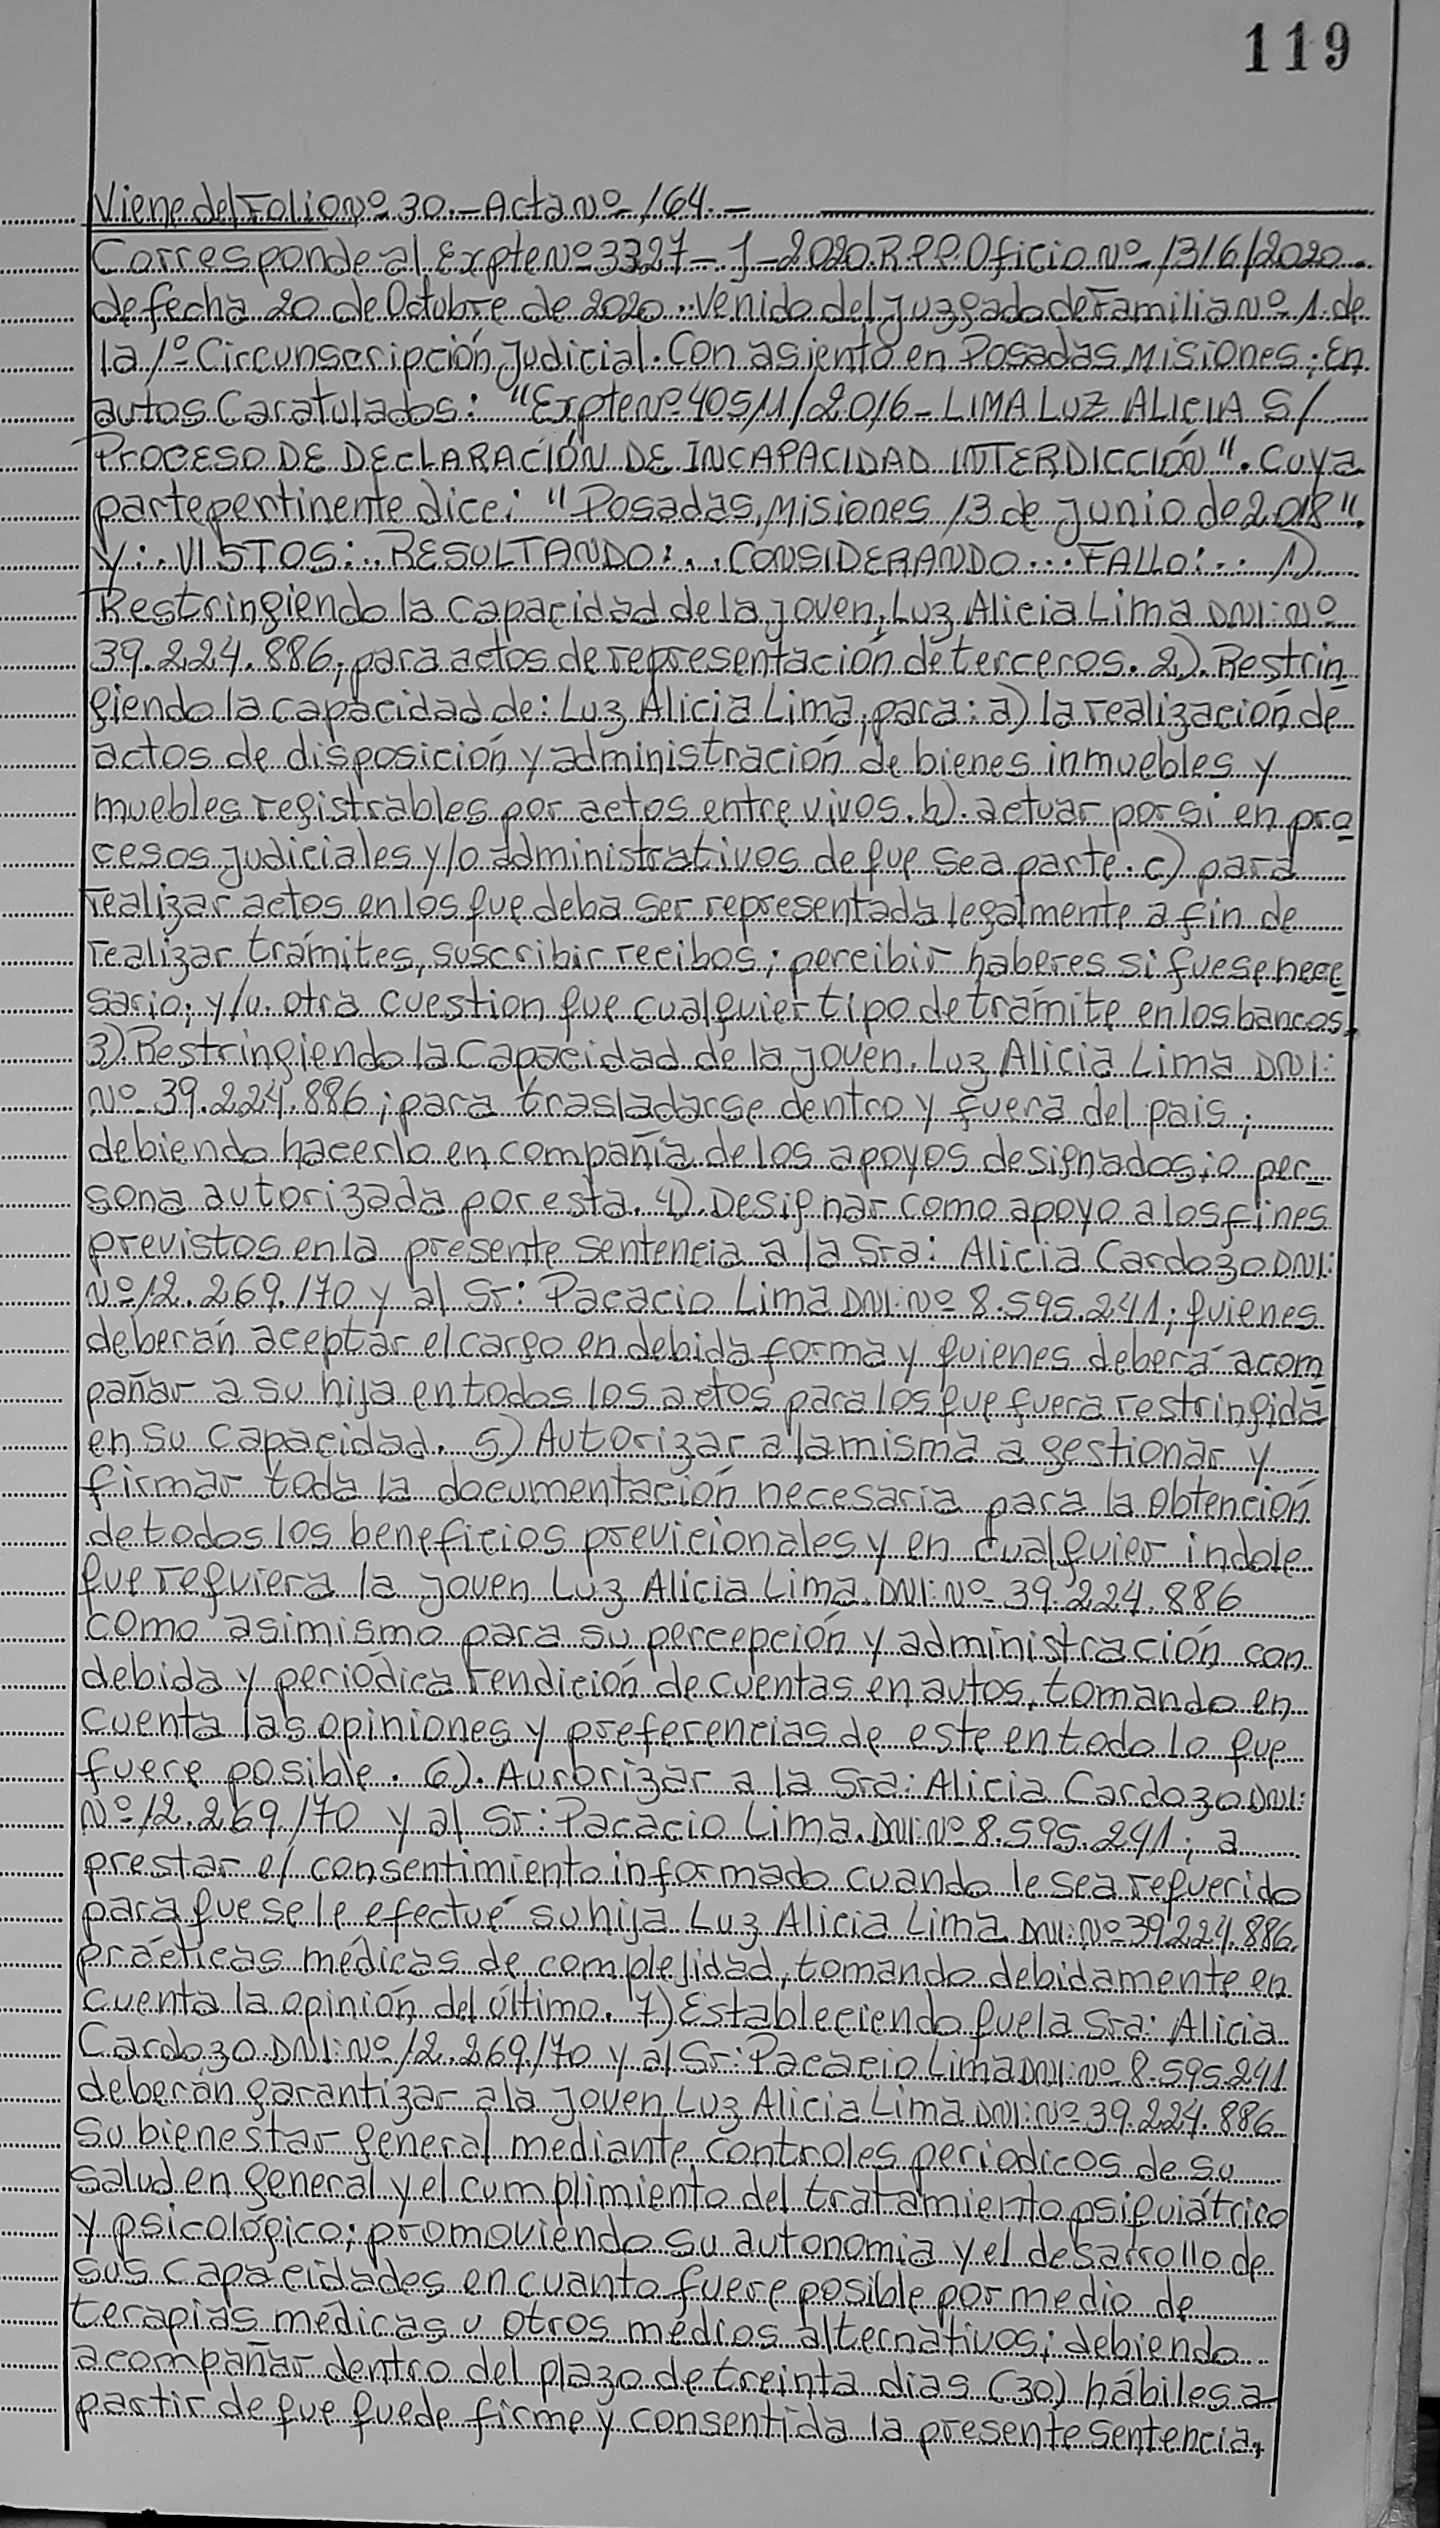 119
Viene del Folio Nº 30.- Acta Nº 164.-
Corresponde al Expte Nº 3327-J-2020 R.P.P. Oficio Nº 1316/2020
de fecha 20 de Octubre de 2020. Venido del Juzgado de Familia Nº 1 de
la 1º Circunscripción Judicial. Con asiento en Posadas Misiones; En
autos Caratulados: "Expte Nº 40511/2016- LIMA LUZ ALICIA S/
PROCESO DE DECLARACIÓN DE INCAPACIDAD INTERDICCIÓN". Cuya
parte pertinente dice: "Posadas, Misiones 13 de Junio de 2018".
Y: VISTOS:.. RESULTANDO:... CONSIDERANDO... FALLO:.. 1)
Restringiendo la capacidad de la joven, Luz Alicia Lima DNI: Nº
39.224.886, para actos de representación de terceros. 2). Restrin
giendo la capacidad de: Luz Alicia Lima, para: a) la realización de
actos de disposición y administración de bienes inmuebles y
muebles registrables por actos entre vivos. b). actuar por si en pro
cesos judiciales y/o administrativos de que sea parte. c) para
realizar actos en los que deba ser representada legalmente a fin de
realizar trámites, suscribir recibos; percibir haberes si fuese nece
sario; y/u otra cuestion que cualquier tipo de trámite en los bancos.
3) Restringiendo la Capacidad de la joven. Luz Alicia Lima DNI:
Nº 39.224.886; para trasladarse dentro y fuera del pais;
debiendo hacerlo en compañía de los apoyos designados; o per
sona autorizada por esta. 4). Designar como apoyo a los fines
previstos en la presente sentencia a la Sra: Alicia Cardozo DNI:
Nº 12.269.170 y al Sr: Pacacio Lima DNI: Nº 8.595.241; quienes
deberán aceptar el cargo en debida forma y quienes deberá acom
pañar a su hija en todos los actos para los que fuera restringida
en su capacidad. 5) Autorizar a la misma a gestionar y
firmar toda la documentación necesaria para la obtención
de todos los beneficios previcionales y en cualquier indole
que requiera la joven Luz Alicia Lima DNI: Nº 39.224.886
como asimismo para su percepción y administración con
debida y periódica rendición de cuentas en autos, tomando en
cuenta las opiniones y preferencias de este en todo lo que
fuere posible. 6). Aurorizar a la Sra: Alicia Cardozo DNI:
Nº 12.269.170 y al Sr: Pacacio Lima. DNI: Nº 8.595.241; a
prestar el consentimiento informado cuando le sea requerido
para que se le efectué su hija Luz Alicia Lima DNI: Nº 39.224.886.
prácticas médicas de complejidad, tomando debidamente en
cuenta la opinión del último. 7) Estableciendo que la Sra: Alicia
Cardozo DNI: Nº 12.269.170 y al Sr: Pacacio Lima DNI: Nº 8.595.241
deberán garantizar a la joven Luz Alicia Lima DNI: Nº 39.224.886
su bienestar general mediante controles periodicos de su
salud en general y el cumplimiento del tratamiento psiquiátrico
y psicológico; promoviendo su autonomia y el desarrollo de
sus capacidades en cuanto fuere posible por medio de
terapias médicas u otros médios alternativos; debiendo
acompañar dentro del plazo de treinta dias (30) hábiles a
partir de que quede firme y consentida la presente sentencia,